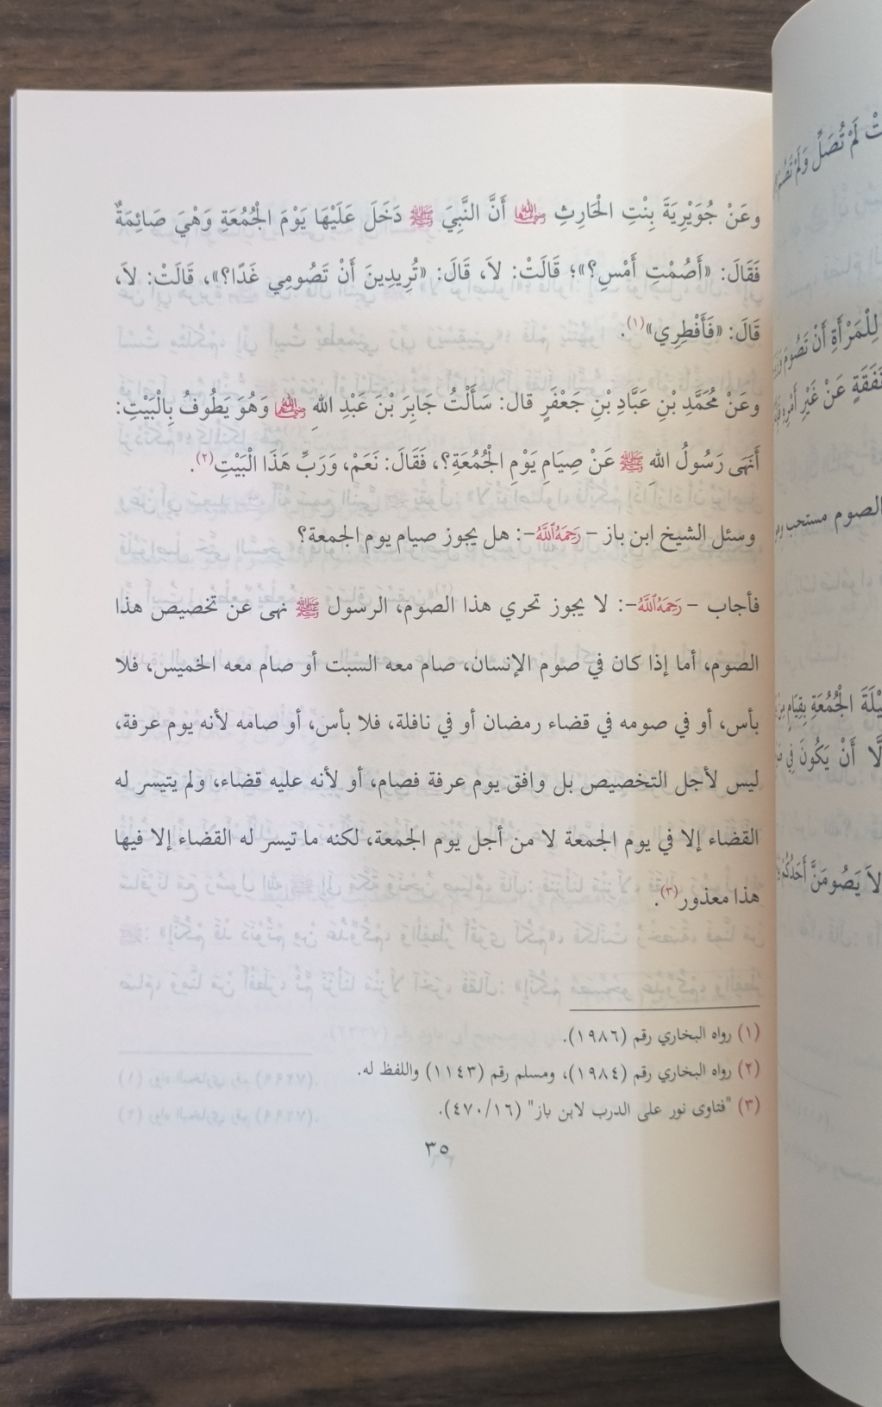 وعَنْ جُوَيْرِيَةَ بِنْتِ الْحَارِثِ أَنَّ النَّبِيَ ﷺ دَخَلَ عَلَيْهَا يَوْمَ الْجُمُعَةِ وَهْيَ صَائِمَةٌ
فَقَالَ: «أَصُمْتِ أَمْسِ؟»؛ قَالَتْ: لاَ، قَالَ: «تُرِيدِينَ أَنْ تَصُومِي غَدًا؟»، قَالَتْ: لاَ،
قَالَ: «فَأَفْطِرِي»(١).
وعَنْ مُحَمَّدِ بْنِ عَبَّادِ بْنِ جَعْفَرٍ قال: سَأَلْتُ جَابِرَ بْنَ عَبْدِ اللهِ وَهُوَ يَطُوفُ بِالْبَيْتِ:
أَنَهَى رَسُولُ اللهِ ﷺ عَنْ صِيَامِ يَوْمِ الْجُمُعَةِ؟، فَقَالَ: نَعَمْ، وَرَبِّ هَذَا الْبَيْتِ(٢).
وسئل الشيخ ابن باز – رَحِمَهُ اللَّهُ –: هل يجوز صيام يوم الجمعة؟
فأجاب – رَحِمَهُ اللَّهُ –: لا يجوز تحري هذا الصوم، الرسول ﷺ نهى عن تخصيص هذا
الصوم، أما إذا كان في صوم الإنسان، صام معه السبت أو صام معه الخميس، فلا
بأس، أو في صومه في قضاء رمضان أو في نافلة، فلا بأس، أو صامه لأنه يوم عرفة،
ليس لأجل التخصيص بل وافق يوم عرفة فصام، أو لأنه عليه قضاء، ولم يتيسر له
القضاء إلا في يوم الجمعة لا من أجل يوم الجمعة، لكنه ما تيسر له القضاء إلا فيها
هذا معذور(٣).
(١) رواه البخاري رقم (١٩٨٦).
(٢) رواه البخاري رقم (١٩٨٤)، ومسلم رقم (١١٤٣) واللفظ له.
(٣) "فتاوى نور على الدرب لابن باز" (٤٧٠/١٦).
٣٥
لَمْ تُصَلِّ وَلَمْ
لِلْمَرْأَةِ أَنْ تَصُومَ
نَفَقَةٍ عَنْ غَيْرِ
الصوم مستحب
لَيْلَةَ الْجُمُعَةِ بِقِيَامٍ
أَنْ يَكُونَ فِي
لاَ يَصُومَنَّ أَحَدُكُمْ